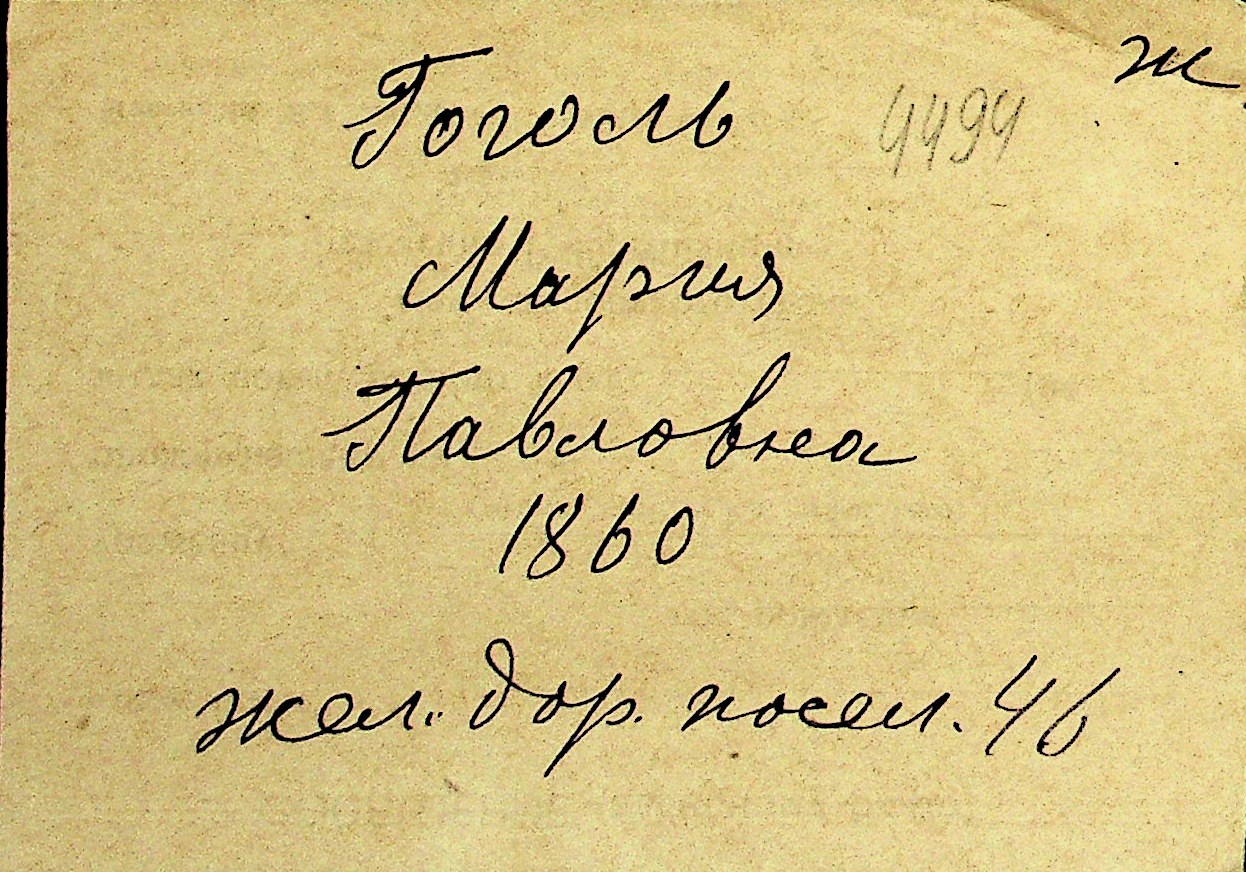 ж.
Гоголь 4494
Мария
Павловна
1860
жел. дор. посел. 46